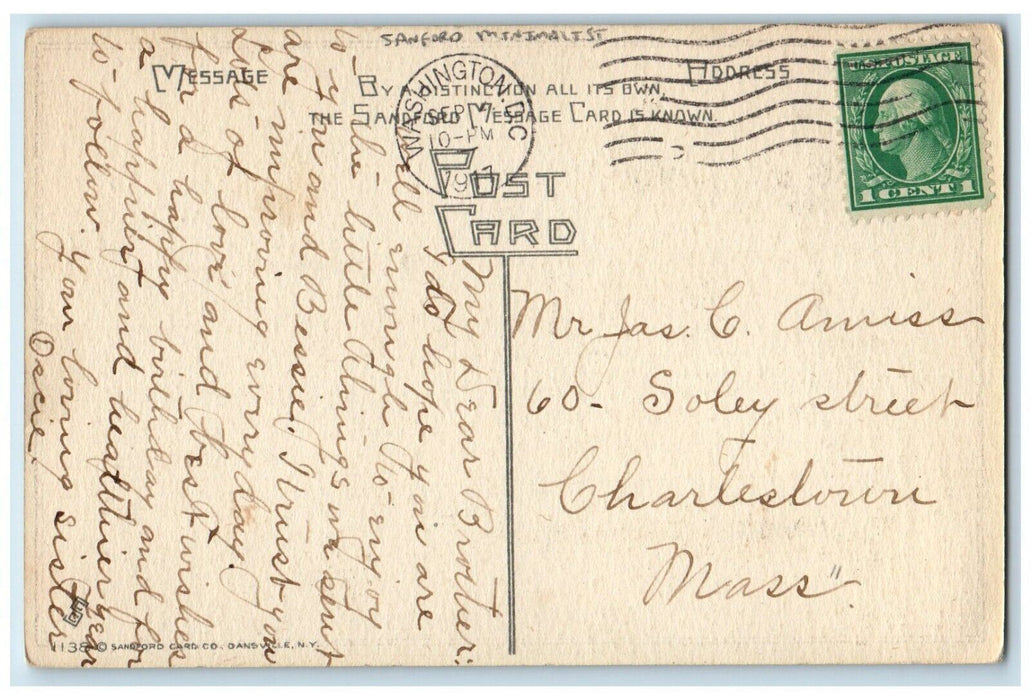 SANFORD MINIMALIST
MESSAGE
ADDRESS
BY A DISTINCTION ALL ITS OWN,
THE SANDFORD MESSAGE CARD IS KNOWN.
POST
CARD
WASHINGTON, D.C.
SEP
10-PM
U.S. POSTAGE
1 CENT 1
My Dear Brother:
I do hope you are
well enough to enjoy
the little things we sent
to you and Bessie. I trust you
are improving every day.
Lots of love and best wishes
for a happy birthday and for
a happier and healthier year
to follow. Your loving sister
Oscie.
Mr Jas. C. Amiss
60- Soley street
Charlestown
Mass"
1138 © SANDFORD CARD CO., DANSVILLE, N.Y.